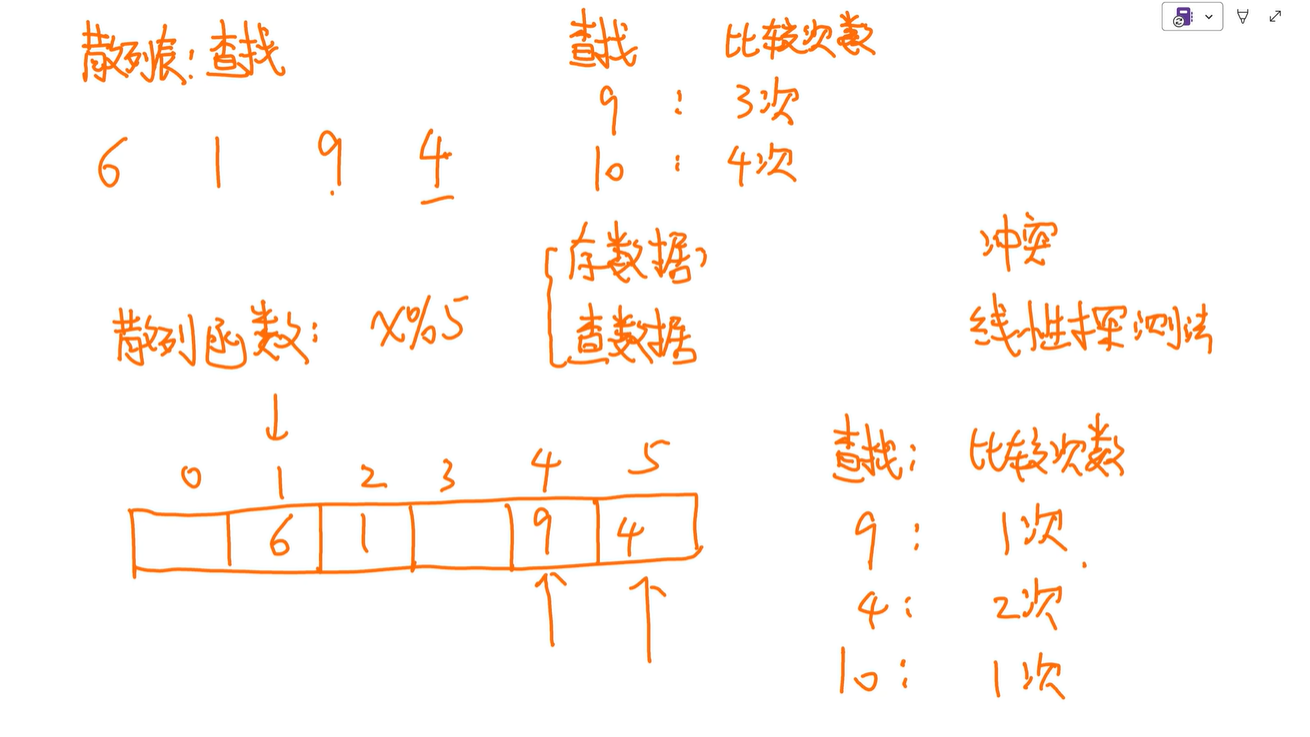 散列表：查找
6 1 9 4
查找 比较次数
9 : 3次
10 : 4次
存数据
查数据
冲突
线性探测法
散列函数: x%5
0 1 2 3 4 5
6 1 9 4
查找: 比较次数
9: 1次
4: 2次
10: 1次